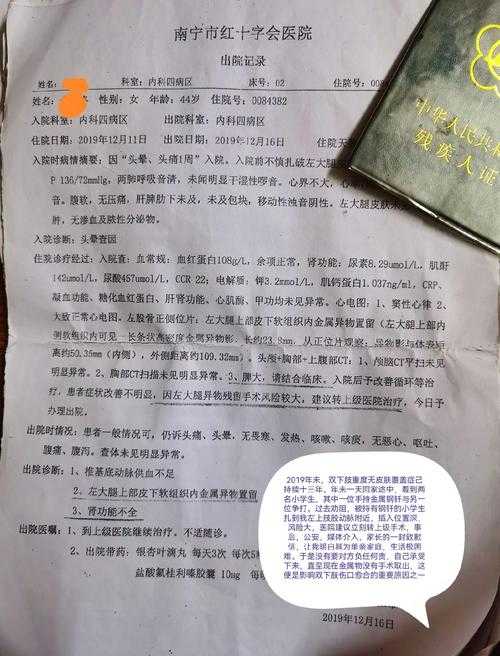 南宁市红十字会医院
出院记录
姓名: 科室: 内科四病区 床号: 02 住院号: 008
姓名: 性别: 女 年龄: 44岁 住院号: 0084382
入院科室: 内科四病区 出院科室: 内科四病区
住院日期: 2019年12月11日 出院日期: 2019年12月16日 住院天
入院时病情摘要: 因“头晕、头痛1周”入院。入院前不慎扎破左大腿
P 136/72mmHg; 两肺呼吸音清, 未闻明显干湿性啰音。心界不大, 心
音。腹软, 无压痛, 肝脾肋下未及, 未及包块, 移动性浊音阴性。左大腿皮肤未
肿, 无渗血及脓性分泌物。
入院诊断: 头晕查因
住院诊疗经过: 入院查: 血常规: 血红蛋白108g/L, 余项正常, 肾功能: 尿素8.29umol/L, 肌酐
142umol/L, 尿酸457umol/L, CCR 22; 电解质: 钾3.2mmol/L, 肌钙蛋白1.037ng/ml, CRP、
凝血功能、糖化血红蛋白、肝肾功能、心肌酶、甲功均未见异常。心电图: 1、窦性心律 2、
大致正常心电图。左股骨正侧位片: 左大腿上部皮下软组织内金属异物置留(左大腿上部内
侧软组织内可见一长条状高密度金属异物影, 长约23.8mm, 从正位片观察: 异物影与体表距
离约50.35mm(内侧), 外侧距离约109.32mm)。头颅+胸部+上腹部CT: 1、颅脑CT平扫未见
明显异常。2、胸部CT扫描未见明显异常。3、脾大, 请结合临床。入院后予改善循环等治
疗, 患者症状改善不明显, 因左大腿异物残留手术风险较大, 建议转上级医院治疗, 今日予
办理出院。
出院时情况: 患者一般情况可, 仍诉头痛、头晕, 无畏寒、发热、咳嗽、咳痰, 无恶心、呕吐、
腹痛、腹泻。查体未见明显异常。
出院诊断: 1、椎基底动脉供血不足
2、左大腿上部皮下软组织内金属异物置留
3、肾功能不全
出院医嘱: 1、到上级医院继续治疗。不适随诊。
2、出院带药: 银杏叶滴丸 每天3次 每次5
盐酸氟桂利嗪胶囊 10mg 每晚
2019年12月16日
中华人民共和
残疾人证
2019年末，双下肢重度无皮肤覆盖症已
持续十三年，年末一天回家途中，看到两
名小学生，其中一位手持金属钢钎与另一
位争打，过去劝阻，被持有钢钎的小学生
扎到我左上肢股动脉附近，插入位置深，
风险大，医院建议立刻转上级手术，事
后，公安，媒体介入，家长的一封致歉
信，让我明白其为单亲家庭，生活极困
难。于是没有要对方负任何责，自己承受
下来，直至现在金属物没有手术取出，这
便是影响双下肢伤口愈合的重要原因之一